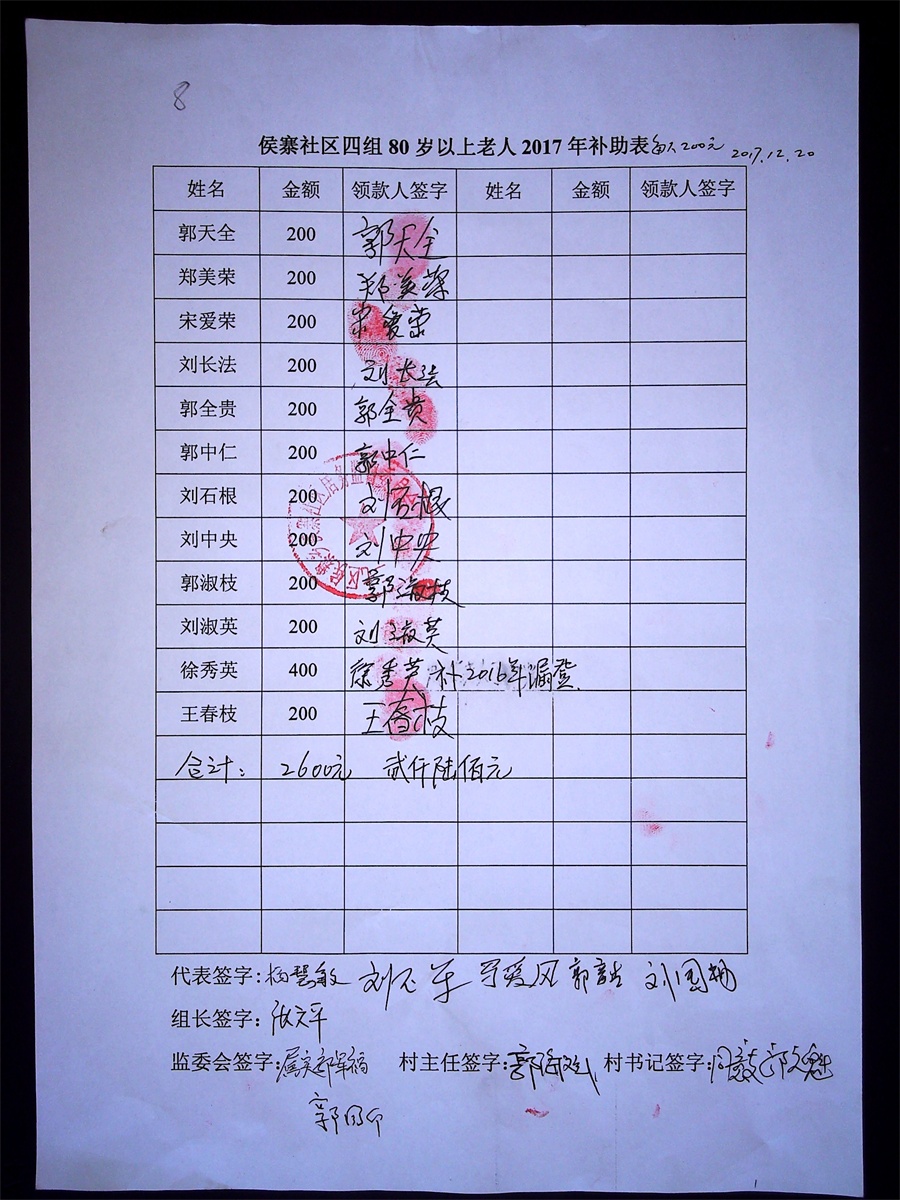 8
侯寨社区四组80岁以上老人2017年补助表 每人200元 2017.12.20
姓名 金额 领款人签字 姓名 金额 领款人签字
郭天全 200 郭天全
郑美荣 200 郑美荣
宋爱荣 200 宋爱荣
刘长法 200 刘长法
郭全贵 200 郭全贵
郭中仁 200 郭中仁
刘石根 200 刘石根
刘中央 200 刘中央
郭淑枝 200 郭淑枝
刘淑英 200 刘淑英
徐秀英 400 徐秀英 补2016年漏登
王春枝 200 王春枝
合计: 2600元 贰仟陆佰元
代表签字: 杨慧敏 刘 军 爱风 郭 刘国
组长签字: 张文平
监委会签字: 属实 郭军福 村主任签字: 郭 村书记签字: 同意 郭文魁
郭